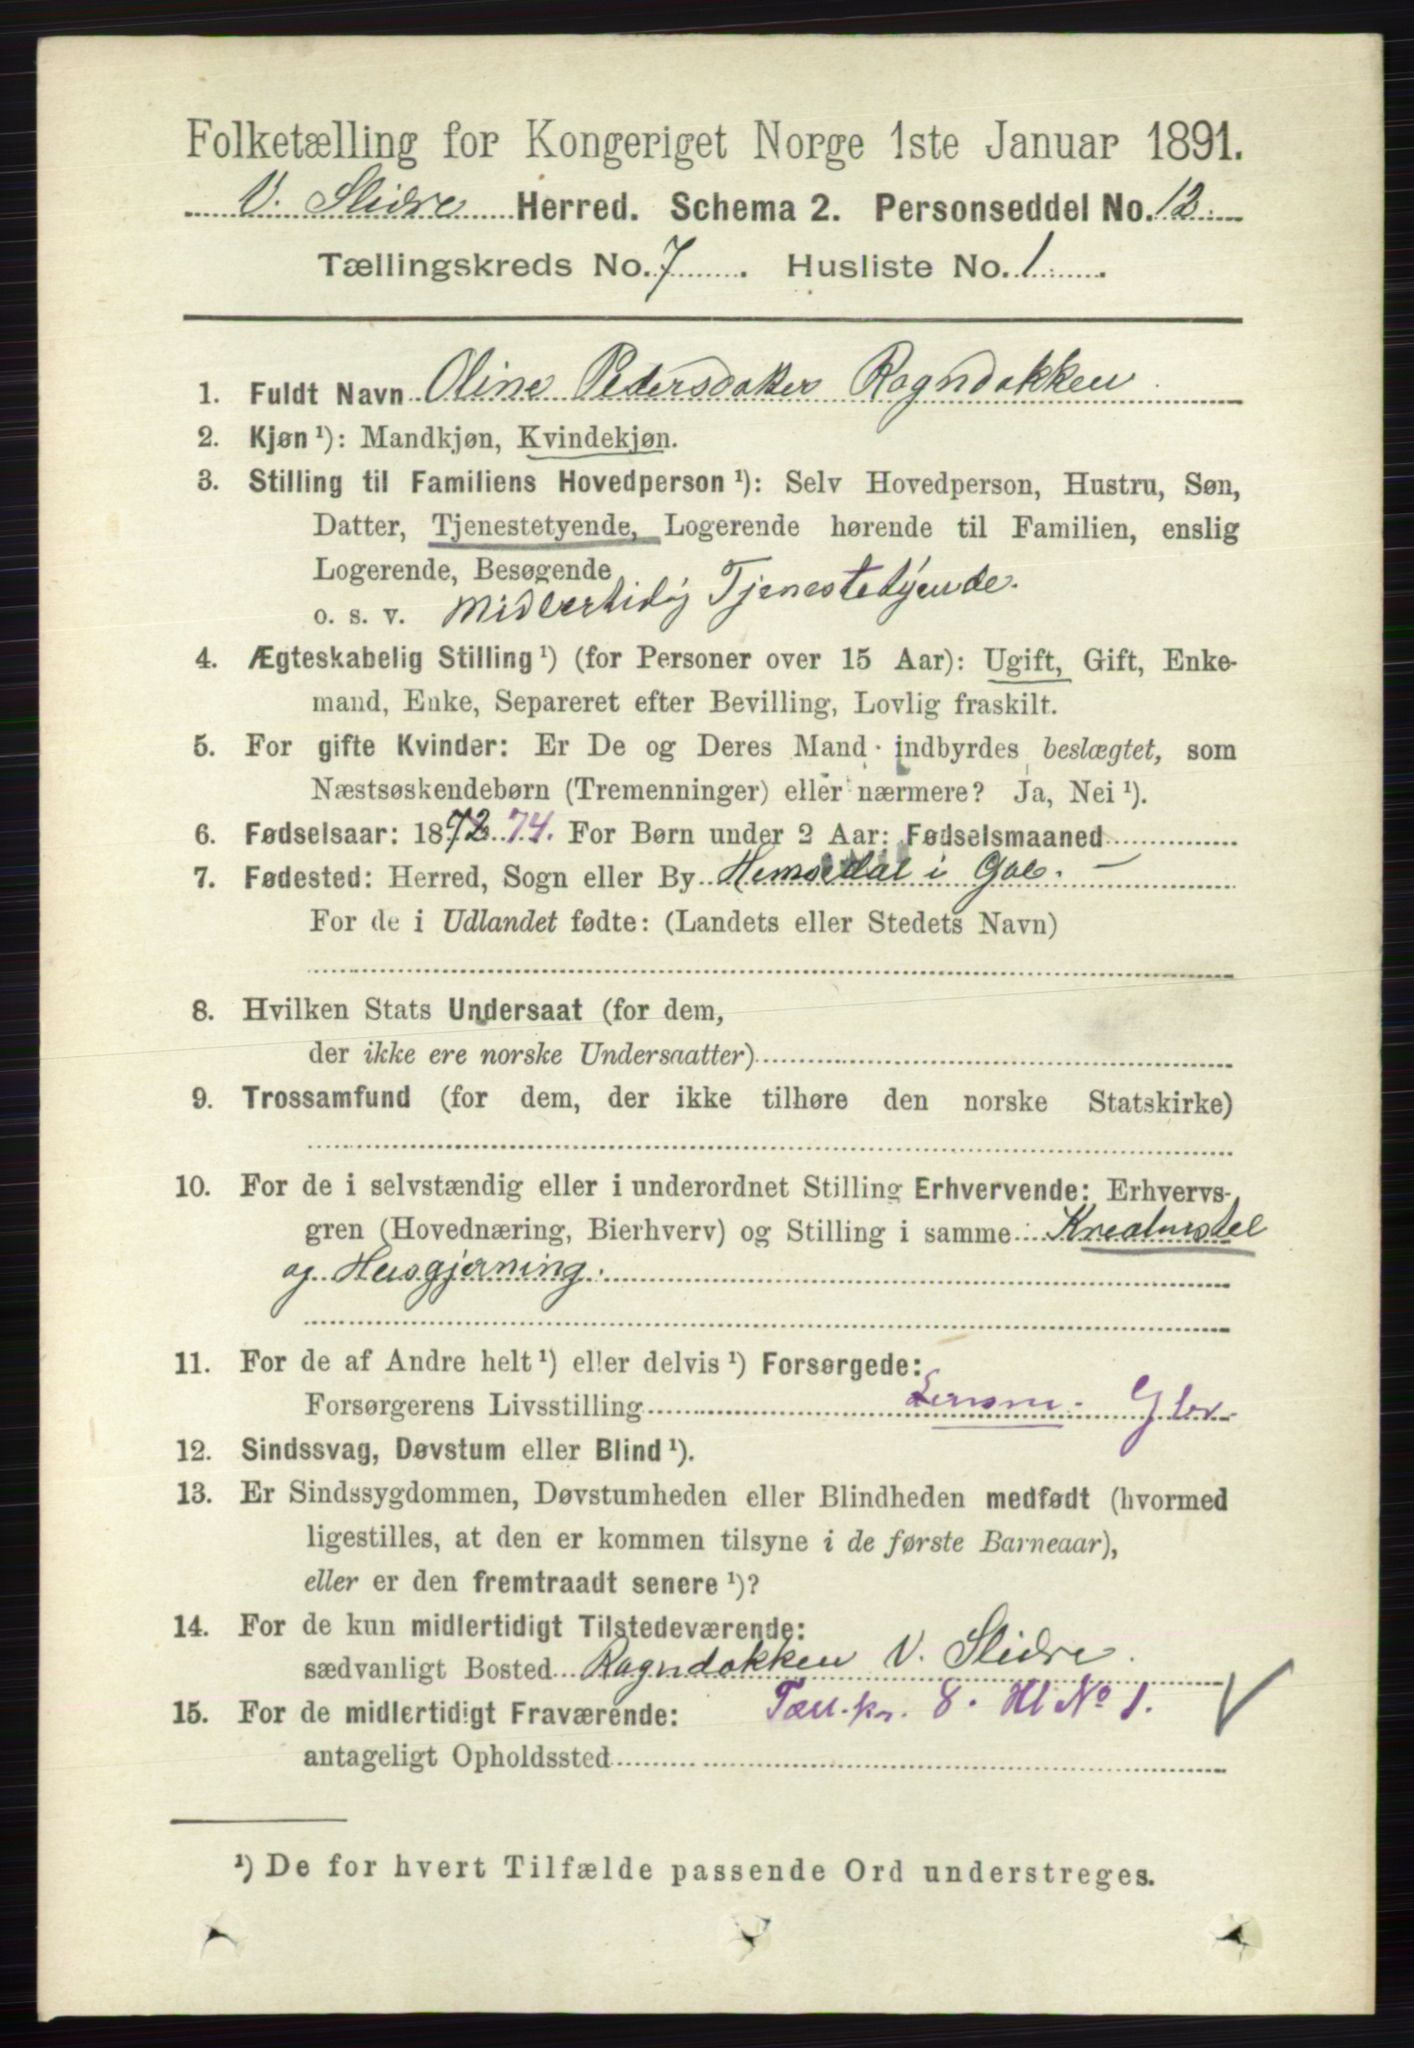 Folketælling for Kongeriget Norge 1ste Januar 1891.
V. Slidre Herred. Schema 2. Personseddel No. 12.
Tællingskreds No. 7. Husliste No. 1.
1. Fuldt Navn Oline Pedersdatter Rogndokken
2. Kjøn ¹): Mandkjøn, Kvindekjøn.
3. Stilling til Familiens Hovedperson ¹): Selv Hovedperson, Hustru, Søn,
Datter, Tjenestetyende, Logerende hørende til Familien, enslig
Logerende, Besøgende
o. s. v. Midlertidig Tjenestetyende.
4. Ægteskabelig Stilling ¹) (for Personer over 15 Aar): Ugift, Gift, Enke-
mand, Enke, Separeret efter Bevilling, Lovlig fraskilt.
5. For gifte Kvinder: Er De og Deres Mand indbyrdes beslægtet, som
Næstsøskendebørn (Tremenninger) eller nærmere? Ja, Nei ¹).
6. Fødselsaar: 1872 74. For Børn under 2 Aar: Fødselsmaaned
7. Fødested: Herred, Sogn eller By Hemsedal i Gol. —
For de i Udlandet fødte: (Landets eller Stedets Navn)
8. Hvilken Stats Undersaat (for dem,
der ikke ere norske Undersaatter)
9. Trossamfund (for dem, der ikke tilhøre den norske Statskirke)
10. For de i selvstændig eller i underordnet Stilling Erhvervende: Erhvervs-
gren (Hovednæring, Bierhverv) og Stilling i samme Kreaturstel
og Husgjerning.
11. For de af Andre helt ¹) eller delvis ¹) Forsørgede:
Forsørgerens Livsstilling
12. Sindssvag, Døvstum eller Blind ¹).
13. Er Sindssygdommen, Døvstumheden eller Blindheden medfødt (hvormed
ligestilles, at den er kommen tilsyne i de første Barneaar),
eller er den fremtraadt senere ¹)?
14. For de kun midlertidigt Tilstedeværende:
sædvanligt Bosted Rogndokken V. Slidre.
15. For de midlertidigt Fraværende: Tæll.kr. 8. Hl No 1.
antageligt Opholdssted
¹) De for hvert Tilfælde passende Ord understreges.